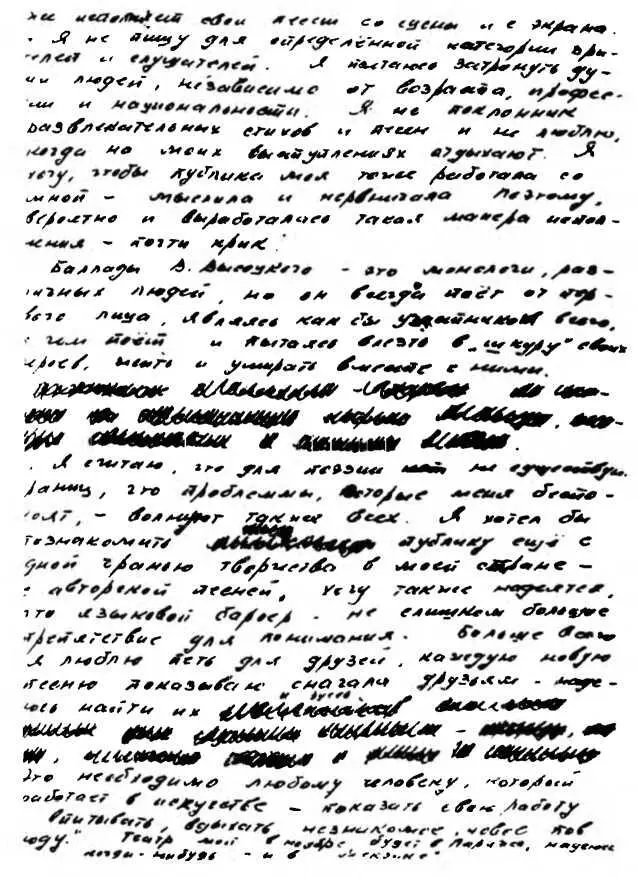 же исполняет свои песни со сцены и с экрана.
Я не пишу для определённой категории зри-
телей и слушателей. Я пытаюсь затронуть ду-
ши людей, независимо от возраста, профес-
сии и национальности. Я не поклонник
развлекательных стихов и песен и не люблю,
когда на моих выступлениях отдыхают. Я
хочу, чтобы публика моя тоже работала со
мной - мыслила и нервничала Поэтому,
вероятно и выработалась такая манера испол-
нения - почти крик.
Баллады В. Высоцкого - это монологи, раз-
личных людей, но он всегда поёт от пер-
вого лица, являясь как бы участником всего,
о чем поёт и пытаясь влезть в "шкуру" своих
героев, жить и умирать вместе с ними.
Я считаю, что для поэзии нет не существую
границ, что проблеммы, которые меня беспо-
коят, - волнуют также всех. Я хотел бы
познакомить публику ещё с
одной гранью творчества в моей стране -
с авторской песней, хочу также надеятся,
что языковой барьер - не слишком большое
препятствие для понимания. Больше всего
я люблю петь для друзей, каждую новую
песню показываю сначала друзьям - наде-
юсь найти их и
Это необходимо любому человеку, который
работает в искусстве - показать свою работу
впитывать, вдыхать незнакомое,
Театр мой в ноябре будет в Париже, надеюсь
когда-нибудь - и в